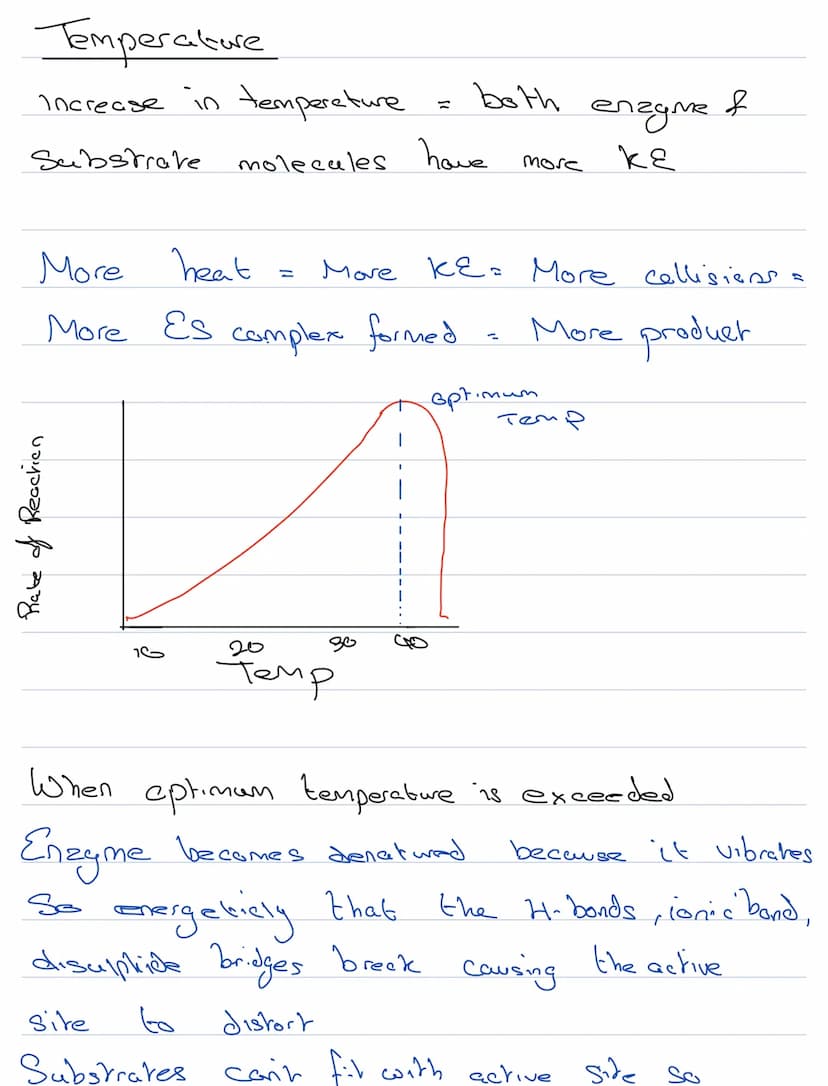 Temperature
Increase in temperature = both enzyme &
Substrate molecules have more KE
More heat = More KE = More collisions =
More ES complex formed = More product
optimum
Temp
Rate of Reaction
10 20 30 40
Temp
When optimum temperature is exceeded
Enzyme becomes denatured because it vibrates
So energeticly that the H-bonds, ionic bond,
disulphide bridges break causing the active
site to distort
Substrates can't fit with active site so